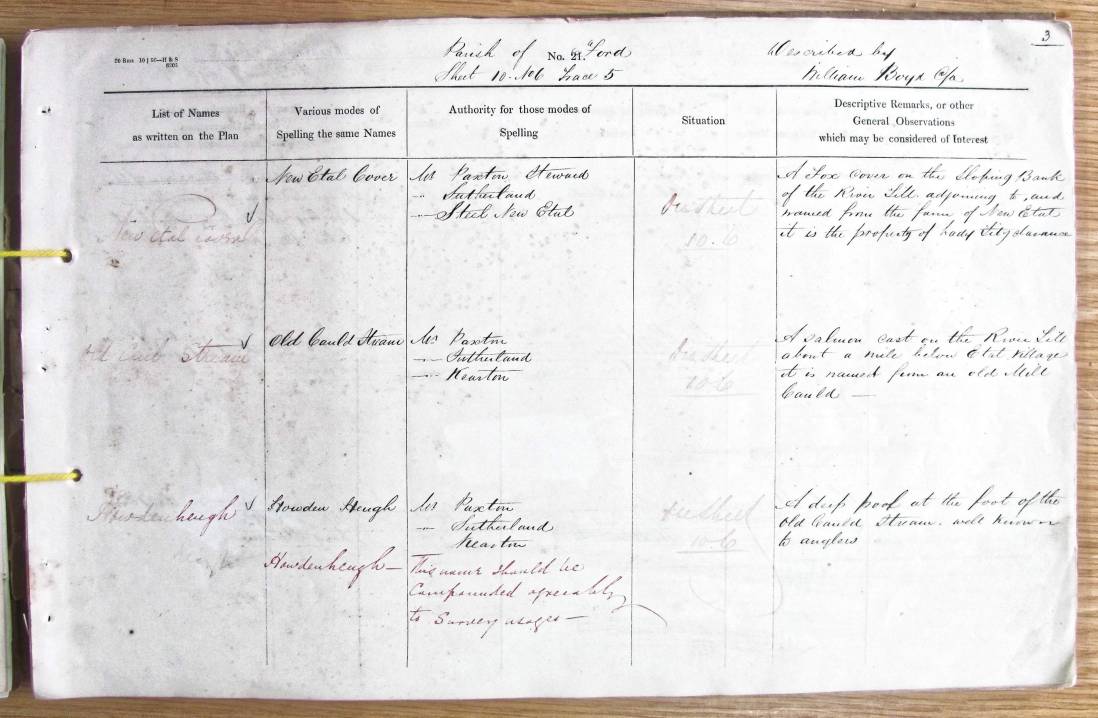 3
20 Rms 10 | 56—H & S
Parish of No. 21. Ford
Described by
Sheet 10. No6 Trace 5
William Boyd C/a
List of Names
as written on the Plan
Various modes of
Spelling the same Names
Authority for those modes of
Spelling
Situation
Descriptive Remarks, or other
General Observations
which may be considered of Interest
New Etal Cover
New Etal Cover
Mr Paxton Steward
" Sutherland
" Steel New Etal
See Sheet
10.6
A Fox Cover on the Sloping Bank
of the River Till adjoining to, and
named from the farm of New Etal
it is the property of Lady Fitzclarance
Old Stream
Old Cauld Stream
Mr Paxton
" Sutherland
" Kearton
See Sheet
10.6
A salmon cast on the River Till
about a mile below Etal village
it is named from an old Mill
Cauld —
Howdenheugh
Howden Heugh
Mr Paxton
" Sutherland
Kearton
See Sheet
10.6
A deep pool at the foot of the
Old Cauld Stream. well known
to anglers
Howdenheugh—
This name should be
Compounded agreeably
to Survey usages—